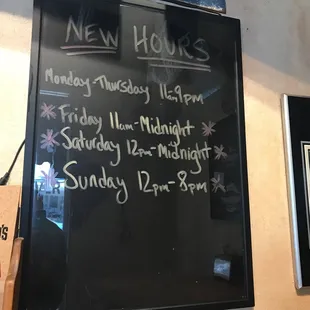 NEW HOURS
Monday-Thursday 11am-9pm
Friday 11am-Midnight
Saturday 12pm-Midnight
Sunday 12pm-8pm